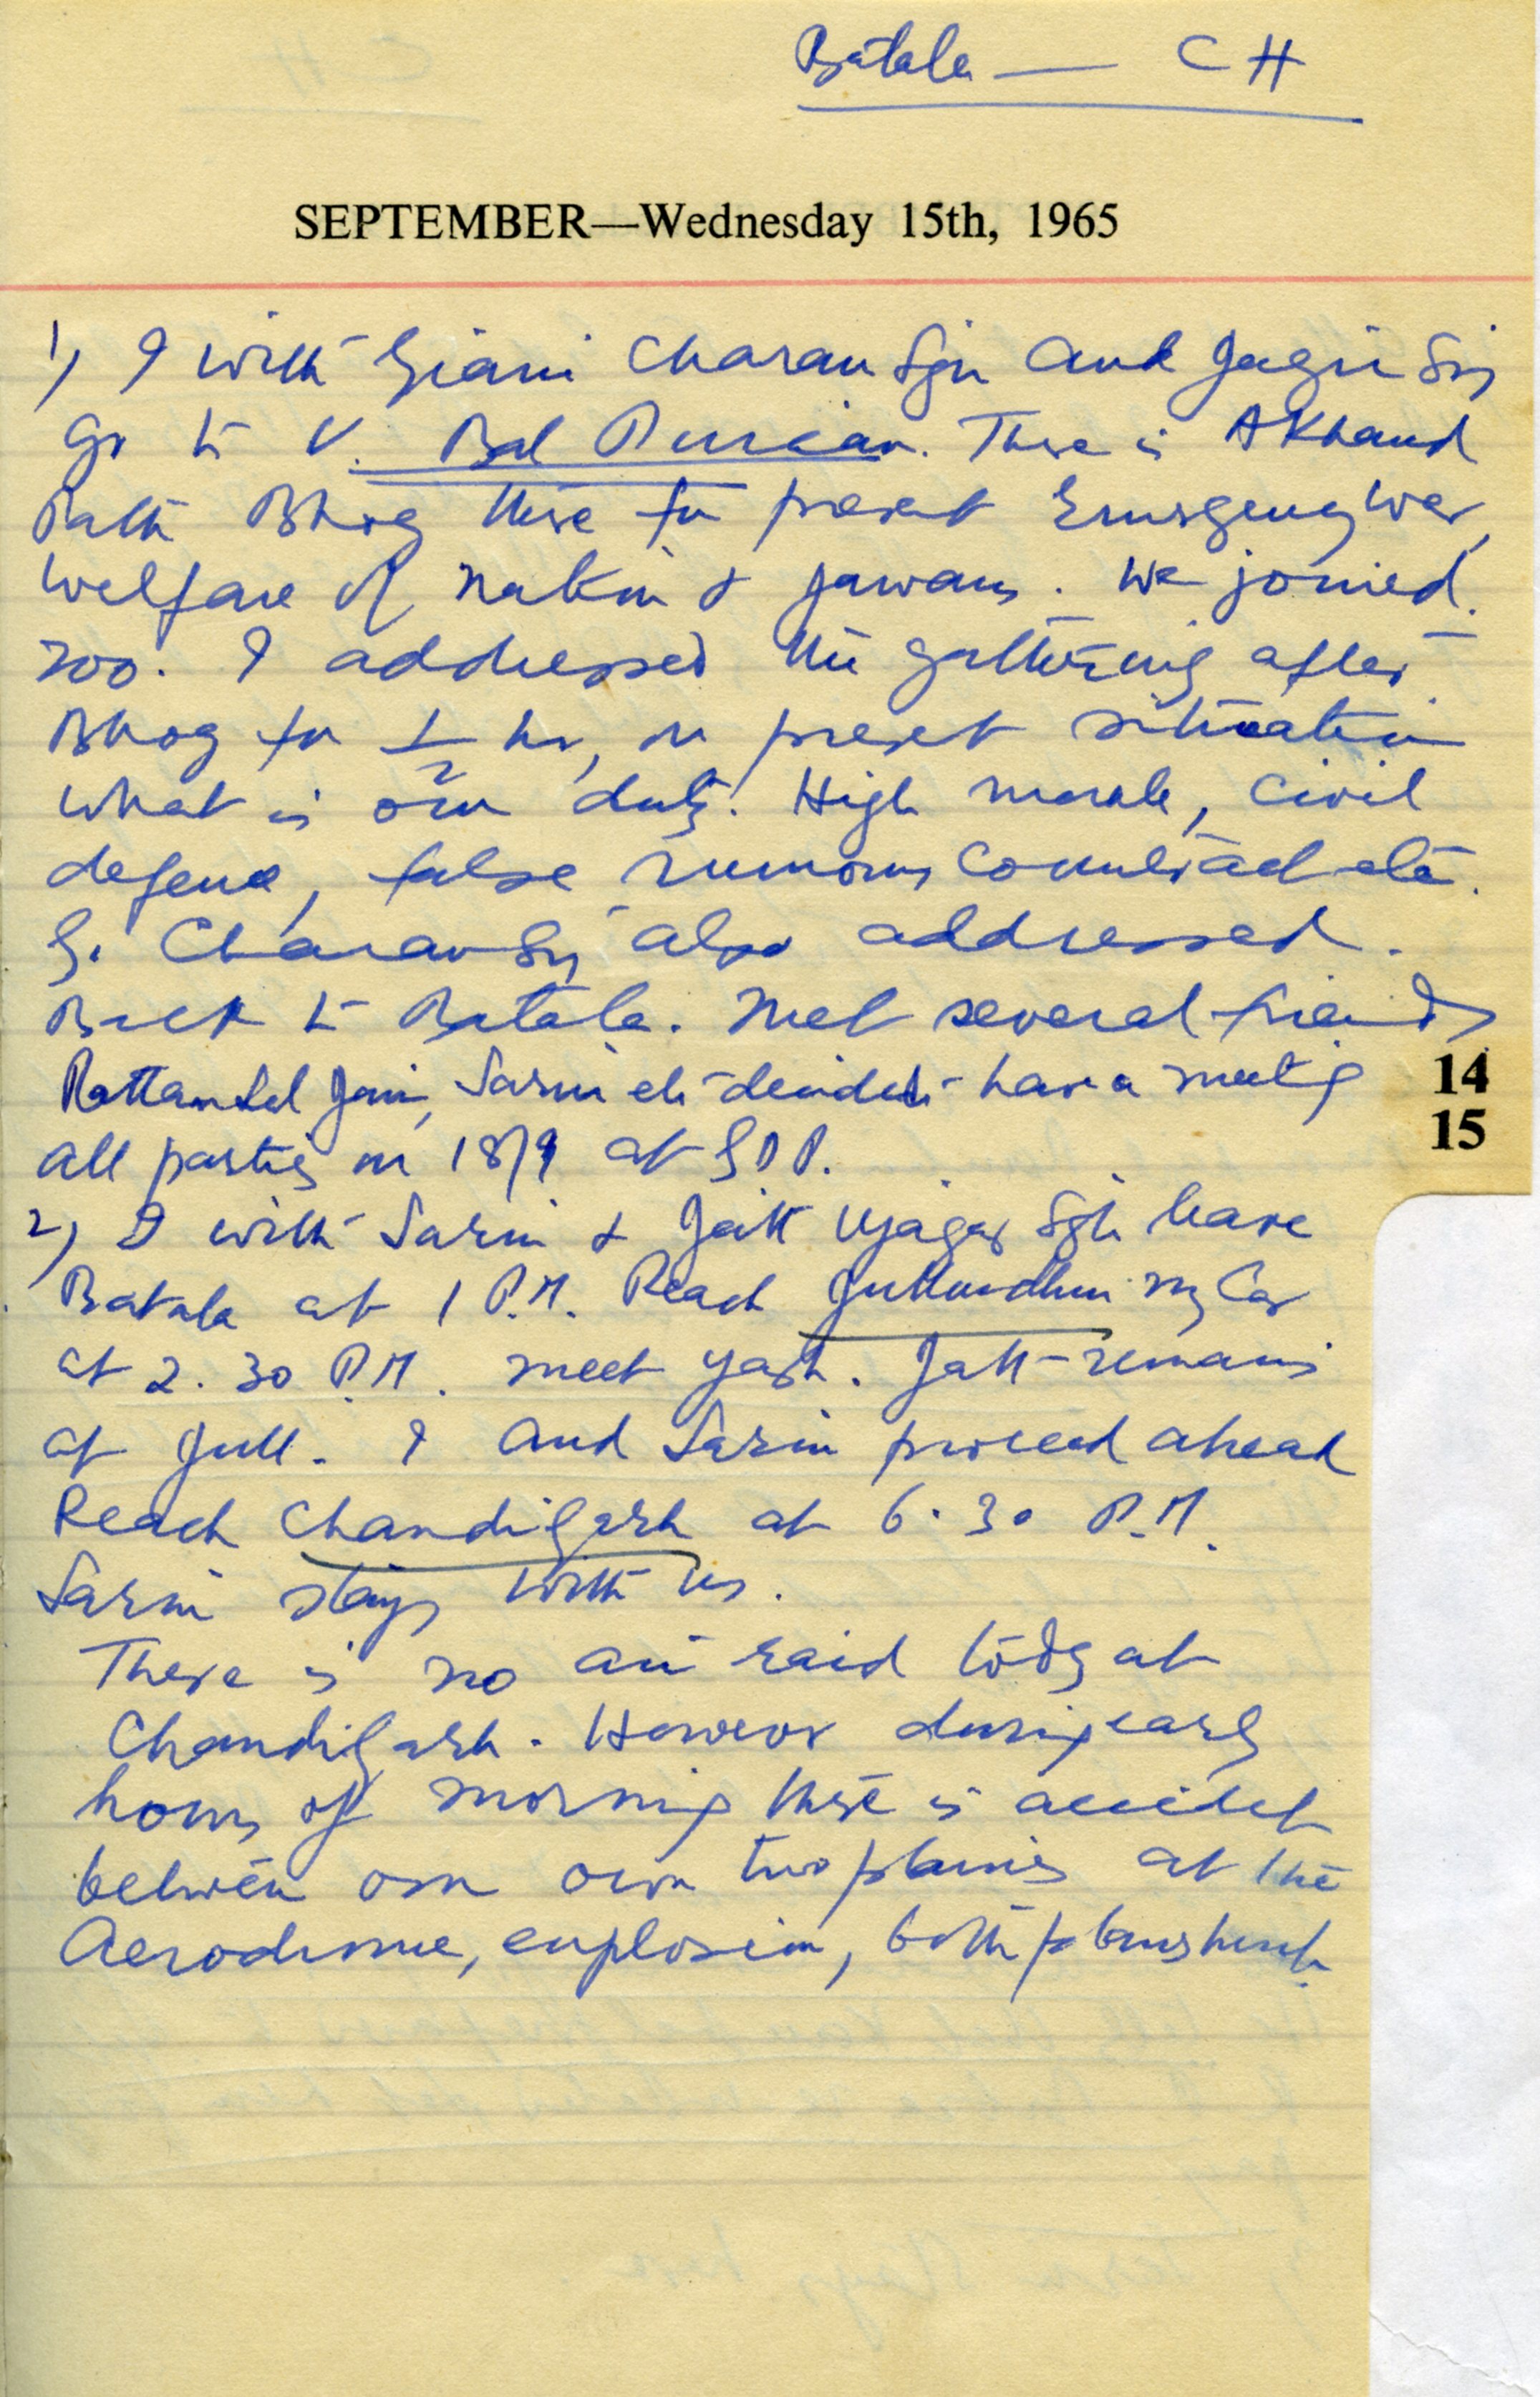 Batala — CH
SEPTEMBER—Wednesday 15th, 1965
1) I with Giani Charan Sgh and Jagir Sin
go to V. Bal Purian. There is Akhand
Path Bhog there for present Emergency War,
welfare of nation & Jawans. We joined.
200. I addressed the gathering after
Bhog for 1/2 hr, on present situation
what is our duty. High morale, Civil
defence, false rumours contradict etc.
G. Charan Sing also addressed.
Back to Batala. Met several friends
Rattan Lal Jain, Sarin etc decided have a meeting
14
all parties on 18/9 at
15
2) I with Sarin & Jatt Ujagar Sgh leave
Batala at 1 P.M. Reach Jullundhur my Car
at 2.30 P.M. meet Yash. Jatt remains
at Jull. I and Sarin proceed ahead
Reach Chandigarh at 6.30 P.M.
Sarin stays with us.
There is no air raid today at
Chandigarh. However during early
hours of morning there is accident
between our own two planes at the
Aerodrome, explosion, both planes burnt.